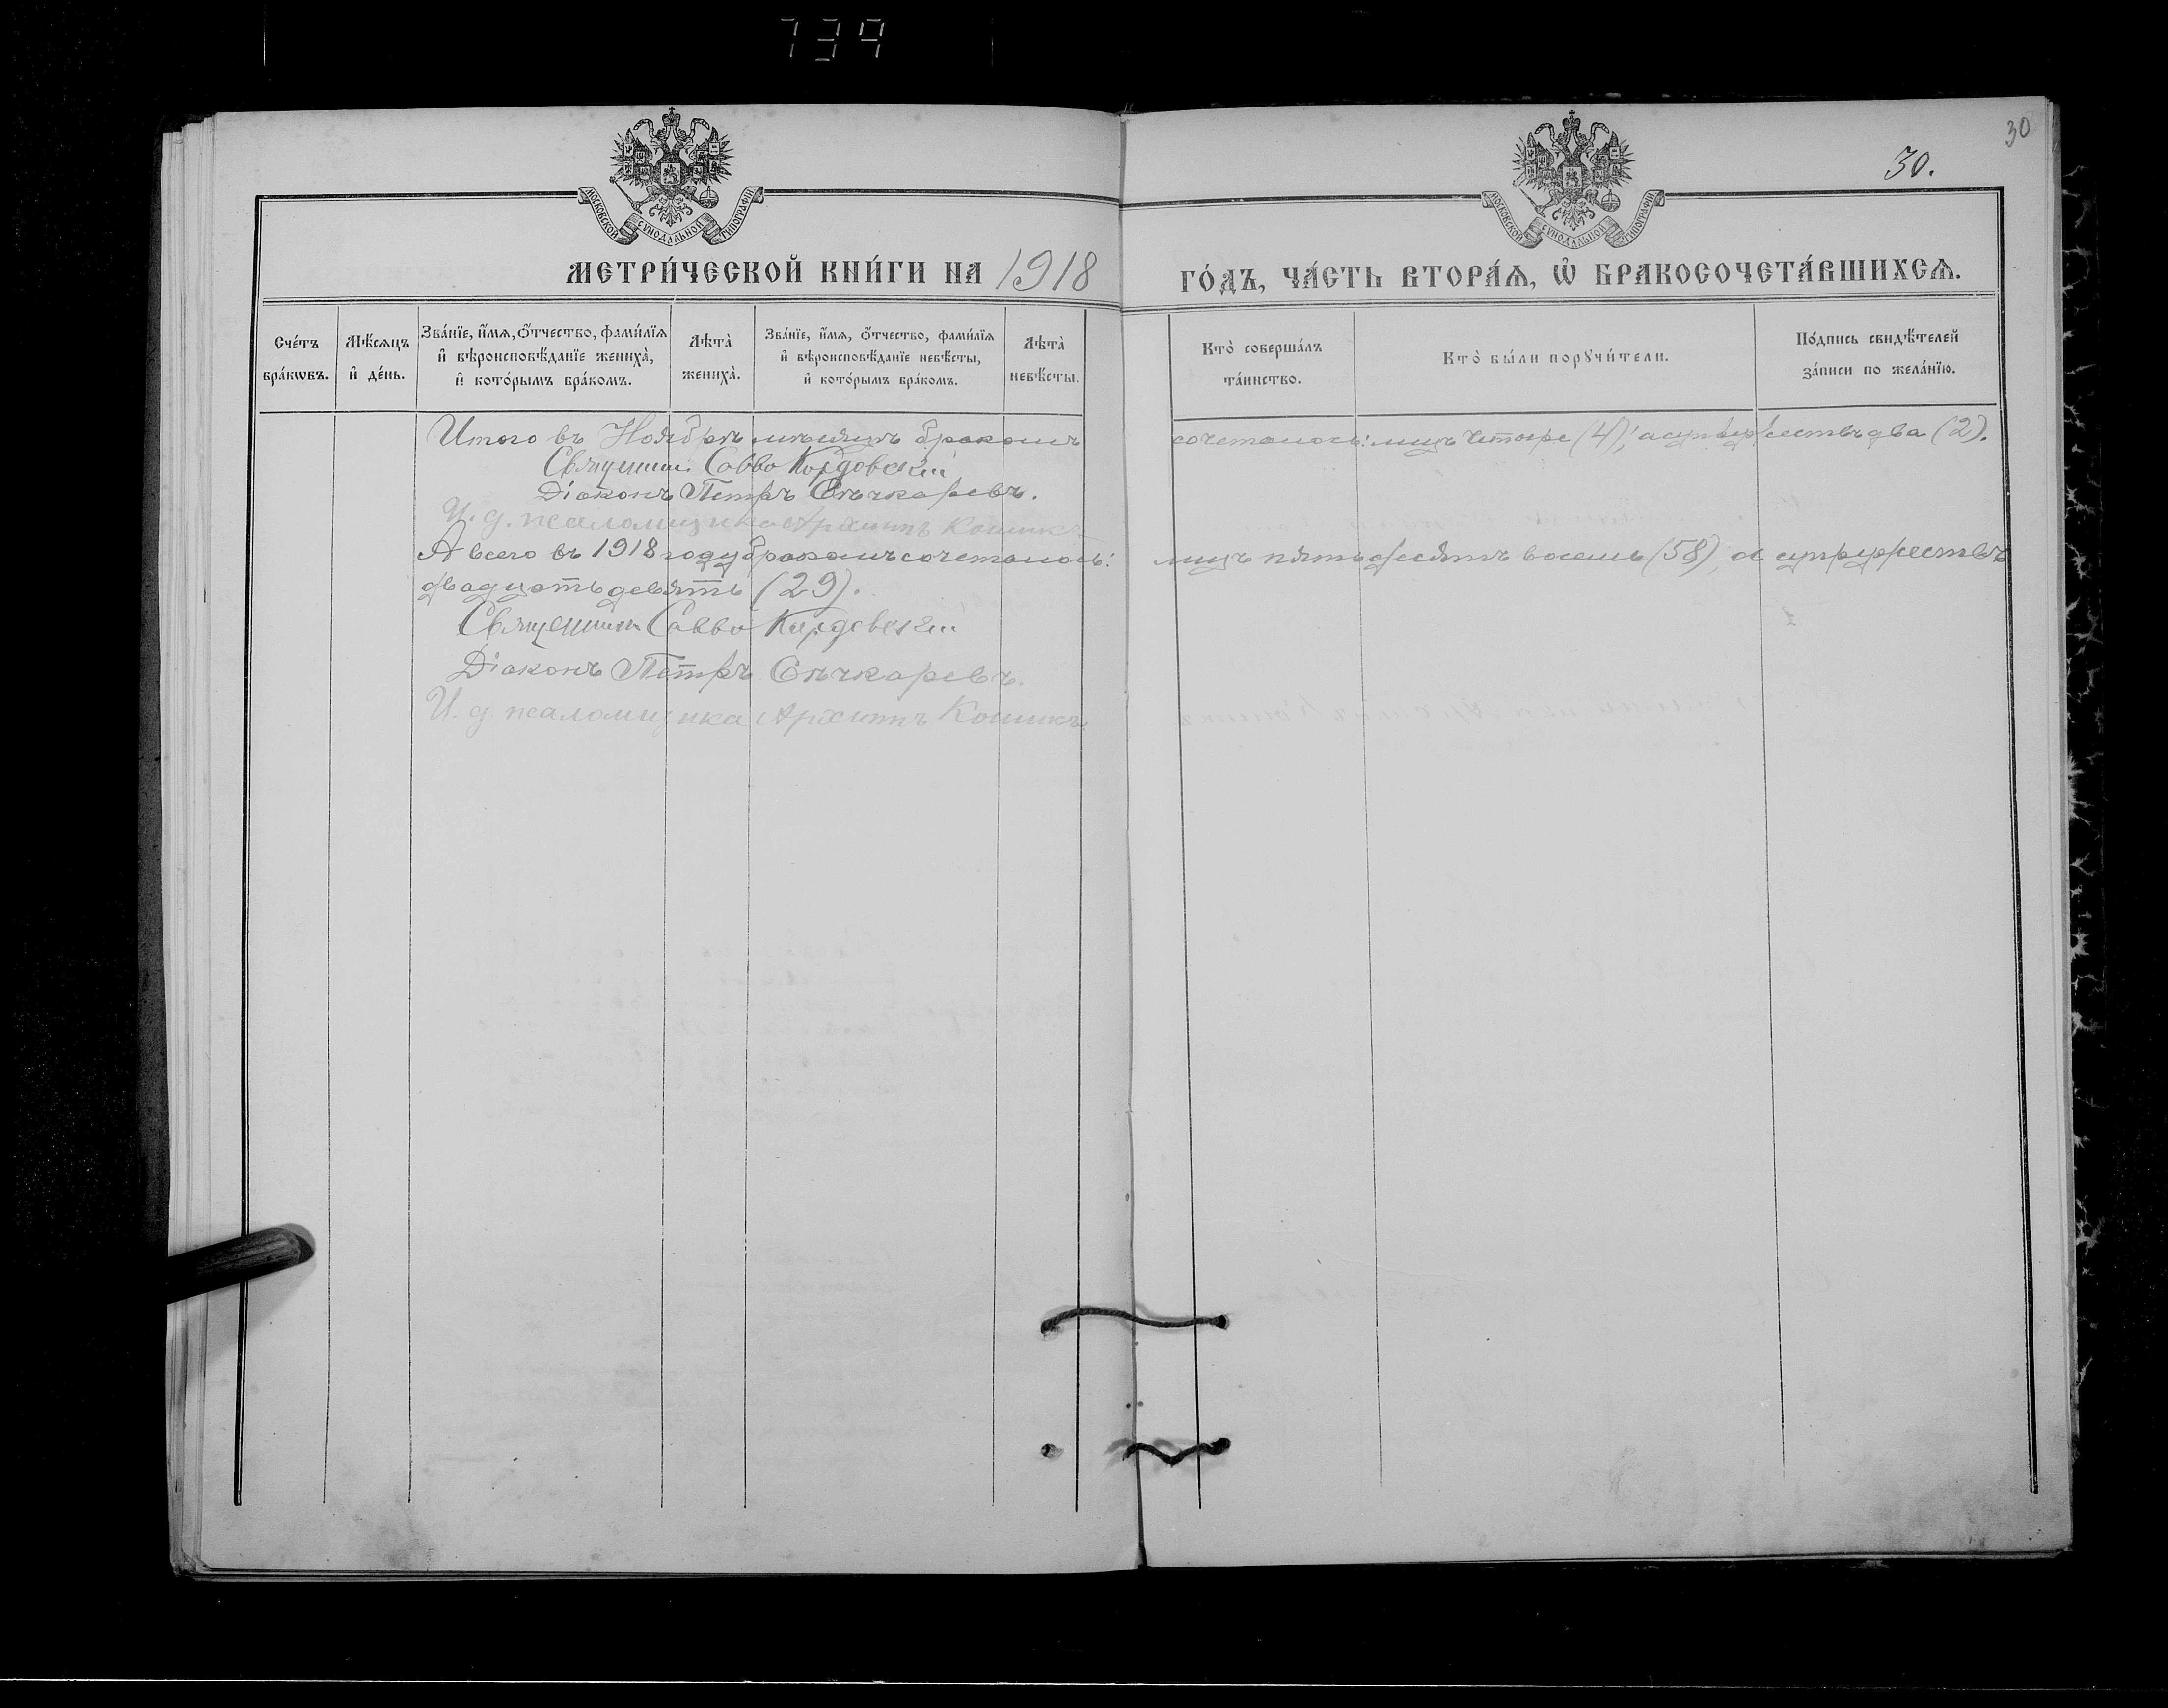 739
30
30.
МОСКОВСКОЙ СѴНОДАЛЬНОЙ ТИПОГРАФІИ
МОСКОВСКОЙ СѴНОДАЛЬНОЙ ТИПОГРАФІИ
МЕТРИ́ЧЕСКОЙ КНИ́ГИ НА 1918 ГО́ДЪ, ЧА́СТЬ ВТОРА́Я, Ѡ БРАКОСОЧЕТА́ВШИХСѦ.
Сче́тъ
бра́кѡвъ.
Мѣ́сяцъ
и҆ де́нь.
Зва́нїе, и҆́мя, ѻ҆́тчество, фами́лїя
и҆ вѣроисповѣ́данїе жениха̀,
и҆ кото́рымъ бра́комъ.
Лѣта̀
жениха̀.
Зва́нїе, и҆́мя, ѻ҆́тчество, фами́лїя
и҆ вѣроисповѣ́данїе невѣ́сты,
и҆ кото́рымъ бра́комъ.
Лѣта̀
невѣ́сты.
Кто̀ соверша́лъ
та́инство.
Кто̀ бы́ли порꙋчи́тели.
По́дпись свидѣ́телей
за́писи по жела́нїю.
Итого въ Ноябрѣ мѣсяцѣ бракомъ сочеталось: лицъ четыре (4), а супружествъ два (2).
Священник Савва
Діаконъ Петръ Сѣчкаревъ.
И. д. псаломщика Архиппъ Кошикъ
А всего въ 1918 году бракомъ сочеталось: лицъ пятьдесятъ восемь (58), а супружествъ
двадцать девять (29).
Священник Савва
Діаконъ Петръ Сѣчкаревъ.
И. д. псаломщика Архиппъ Кошикъ